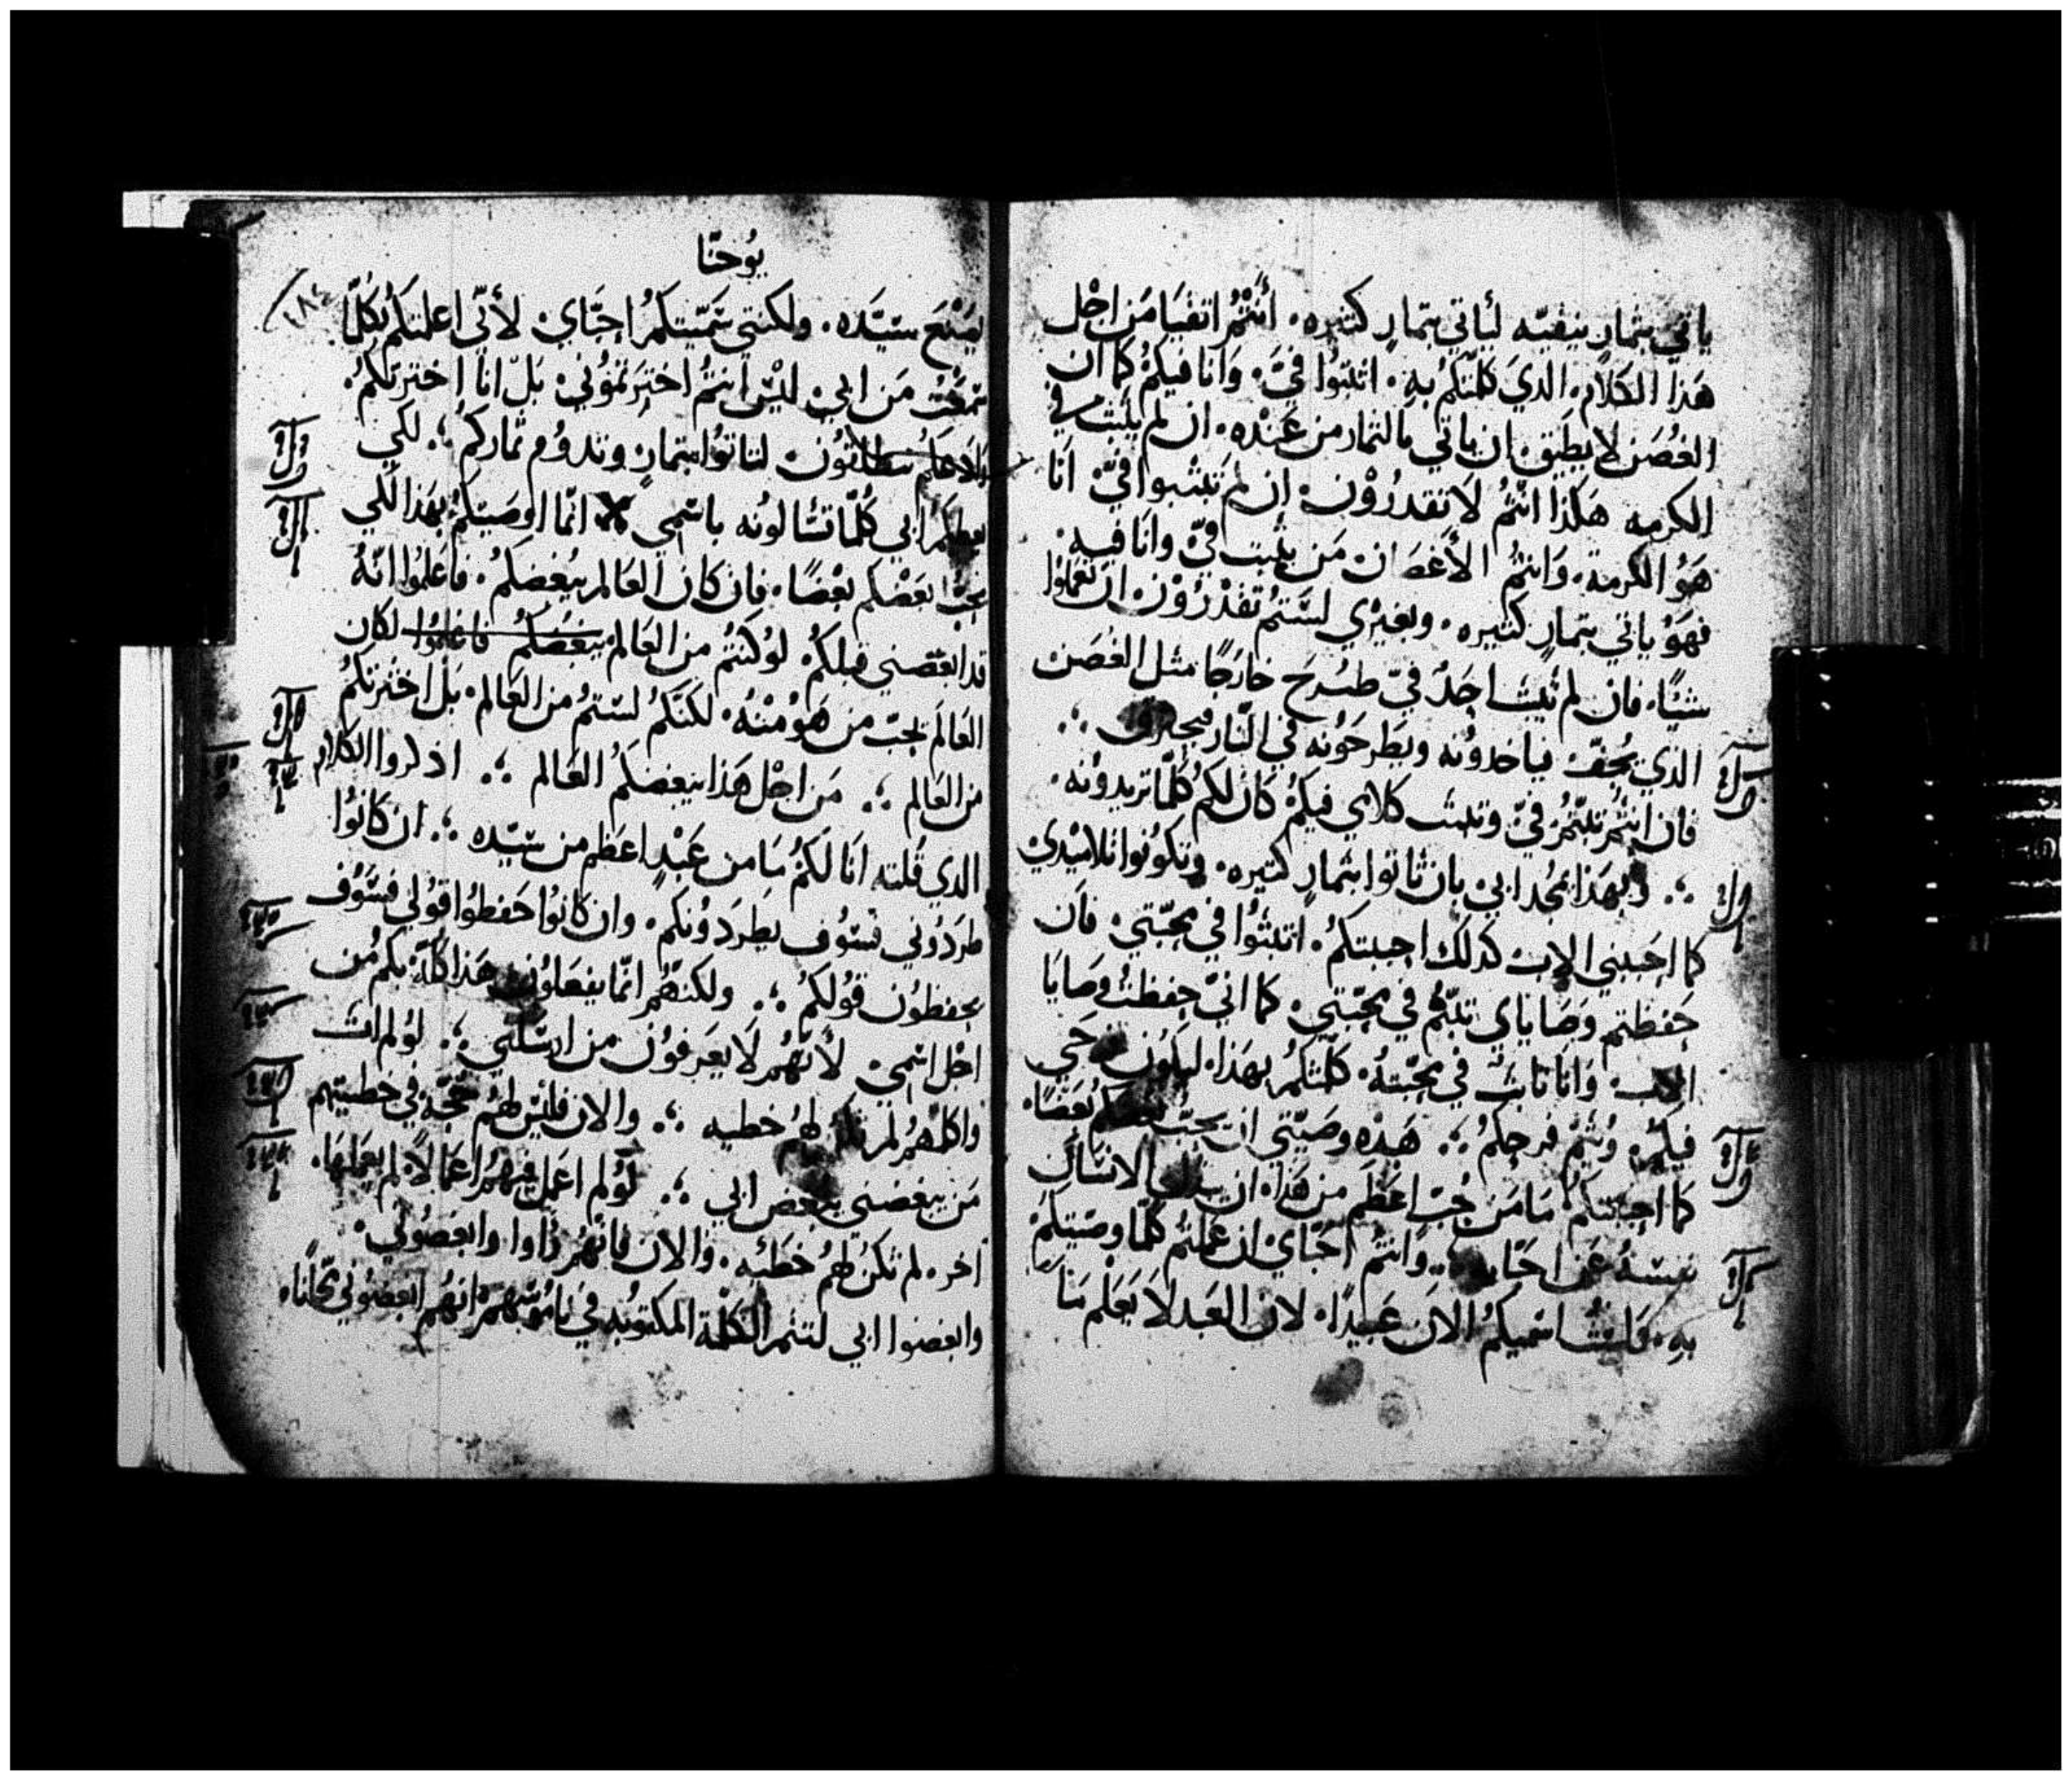 ياتي بثمارٍ ينقيّه ليأتي بتمارٍ كتيره. أنتُمُ انقيَا مَن اجْل
هَذا الكلام. الدي كلّمتكمُ بهِ. اتبتُوا فيَّ. وَانا فيكمُ كما ان
الغُصَن لا يطيق ان ياتي بالتمار من عَندْه. ان لم يثبت في
الكرمه هَكذا انتُمُ لا تقدرُوْن. ان لم تتبتوا فيّ انَا
هَوُ الكرمة. وَانتُمُ الأغصَان مَن يثبت فيّ وانا فيهِ.
فهَوُ ياتي بتمارٍ كتيره. وبغيرْي لسْتمُ تقدْرُوْن ان تعَملوا
شيئًا. فان لم يثبت احَدُ فيّ طرحَ خارجًا مثل الغصَن
الدي يُجفّ فياخدوُنه ويَطرحَوُنه في النّار فيحترق ؞
فان انتُم تبتّمُ فيّ وتبتت كلامي فيكمُ كان لكم كلّما تريدوُنه.
؞ وبهَذا يمجد ابي بان تاتوا بثمارٍ كتيره. وتكوُنوا تلاميْدي
كما احَببني الاب كدلك احببتكمُ. اتبتُوا في محبّتي. فان
حَفظتم وصَاياي تبتّمُ في محَبّتي. كما انيّ حفظتُ وصَايَا
الاب وَانا ثابتُ في محبّتهُ. كلّمتكمُ بهَذا. ليكوُن فرحَي
فيكمُ. ويُتمّ فرحكمُ ؞ هَدْه وصَيّتي ان يحَبّ بعضكم بعَضًا.
كما احببتكمُ مَا مَن حُبّ اعظَم من هَذا. ان يبدل الانسَان
نفسَهُ عَن احَبّايه ؞ وَانتُم احَبّاي ان عَملتمُ كلّما وصّيتكمْ
بهِ. فلستُ اسّميكمُ الان عَبيدًا. لان العَبد لا يَعَلم مَا
يوُحنّا
١٨٤
يصَنْعَ سيّدَه. ولكنني سَمّيتكمُ احِبَّاي. لأنّي اعلمتكمُ بكلّما
سمَعْتُ مَن ابيْ. ليْس انتُمُ اخترَتموُني. بَل انَا اخترتكمُ.
لتاتوُا بتمارٍ وتدوُم تماركمُ ؞ لكي
يعطيكم ابي كُلّما تسَالوُنه باسْمي انمّا اوصَيتكمُ بهَذا لكي
يحبّ بعَضْكم بعْضًا. فان كان العَالم يبغضكمُ. فاعَلموُا انّهُ
قد ابغضني قبلكمُ لوُ كنتُم من العَالم يبغُضكمُ فاعلموُا لكان
العَالَم يحبّ من هَوُ منْهُ. لكنّكمُ لسَتمُ من العَالم. بَل اخترتكمُ
من العَالم ؞ مَن اجْل هَذا يبغضكمُ العَالم ؞ ادكروا الكلام
الدي قُلته انَا لكمُ مَا من عَبْدٍ اعظم من سَيّده ؞ ان كانوُا
طردَوُني فسَوُف يطردَوُنكم. وان كانوُا حَفظوُا قوُلي فسَوُف
يحفظوُن قوُلكمُ ؞ ولكنهّمُ انمّا يفعَلوُن هَذا كلّه بكمُ من
اجْل اسْميْ لأنّهُمُ لا يعَرفوُن من ارسَلني ؞ لوُ لم ات
واكلّمهُمُ لم تكن لهمُ خطيه ؞ والان فليْس لهمُ حجّه في خطيتهم
مَن يبغضني يبغض ابي ؞ لوُ لم اعمل فيهمُ اعَمَالاً. لم يعَملهَا.
اخر. لم تكنْ لهمُ خطيّه. والان فانهّمُ رَاوا وابغضُوُني.
وابغضوا ابي لتتمُ الكلمة المكتوُبه في نامُوُسَهمُ انهُم ابغضوُني مجَّانًا.